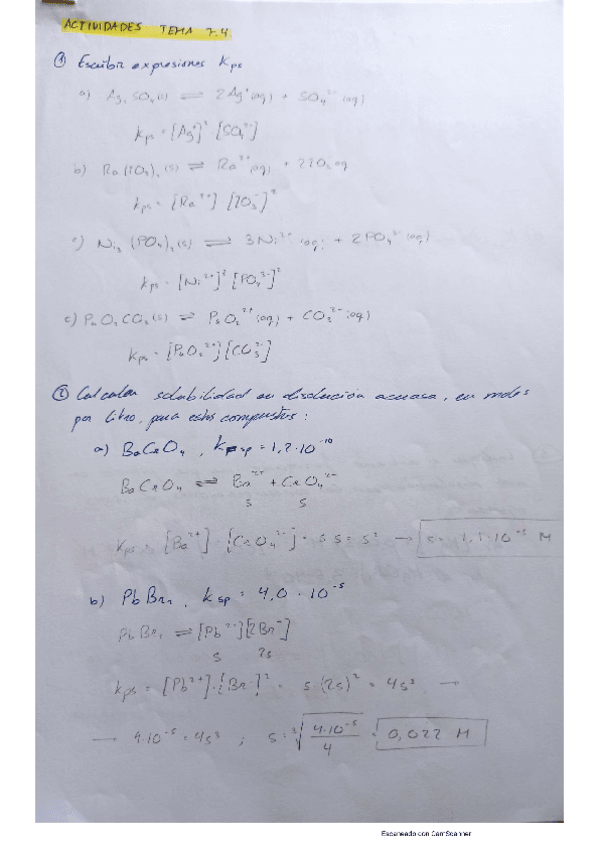 ACTIVIDADES TEMA 7.4
① Escribir expresiones Kps
a) Ag₂SO₄(s) ⇌ 2Ag⁺(aq) + SO₄²⁻(aq)
Kps = [Ag⁺]² [SO₄²⁻]
b) Ra(IO₃)₂(s) ⇌ Ra²⁺(aq) + 2IO₃⁻aq
Kps = [Ra²⁺] [IO₃⁻]²
Ni₃(PO₄)₂(s) ⇌ 3Ni²⁺(aq) + 2PO₄³⁻(aq)
Kps = [Ni²⁺]³ [PO₄³⁻]²
c) PuO₂CO₃(s) ⇌ PuO₂²⁺(aq) + CO₃²⁻(aq)
Kps = [PuO₂²⁺][CO₃²⁻]
② Calcular solubilidad en disolución acuosa, en moles
por litro, para estos compuestos:
a) BaCrO₄, Ksp = 1,2·10⁻¹⁰
BaCrO₄ ⇌ Ba²⁺ + CrO₄²⁻
s s
Kps = [Ba²⁺]·[CrO₄²⁻] = s·s = s² → s = 1,1·10⁻⁵ M
b) PbBr₂, Ksp = 4,0·10⁻⁵
PbBr₂ ⇌ [Pb²⁺][2Br⁻]
s 2s
Kps = [Pb²⁺]·[Br⁻]² = s·(2s)² = 4s³ →
→ 4·10⁻⁵ = 4s³ ; s = ³√(4·10⁻⁵/4) = 0,022 M
Escaneado con CamScanner